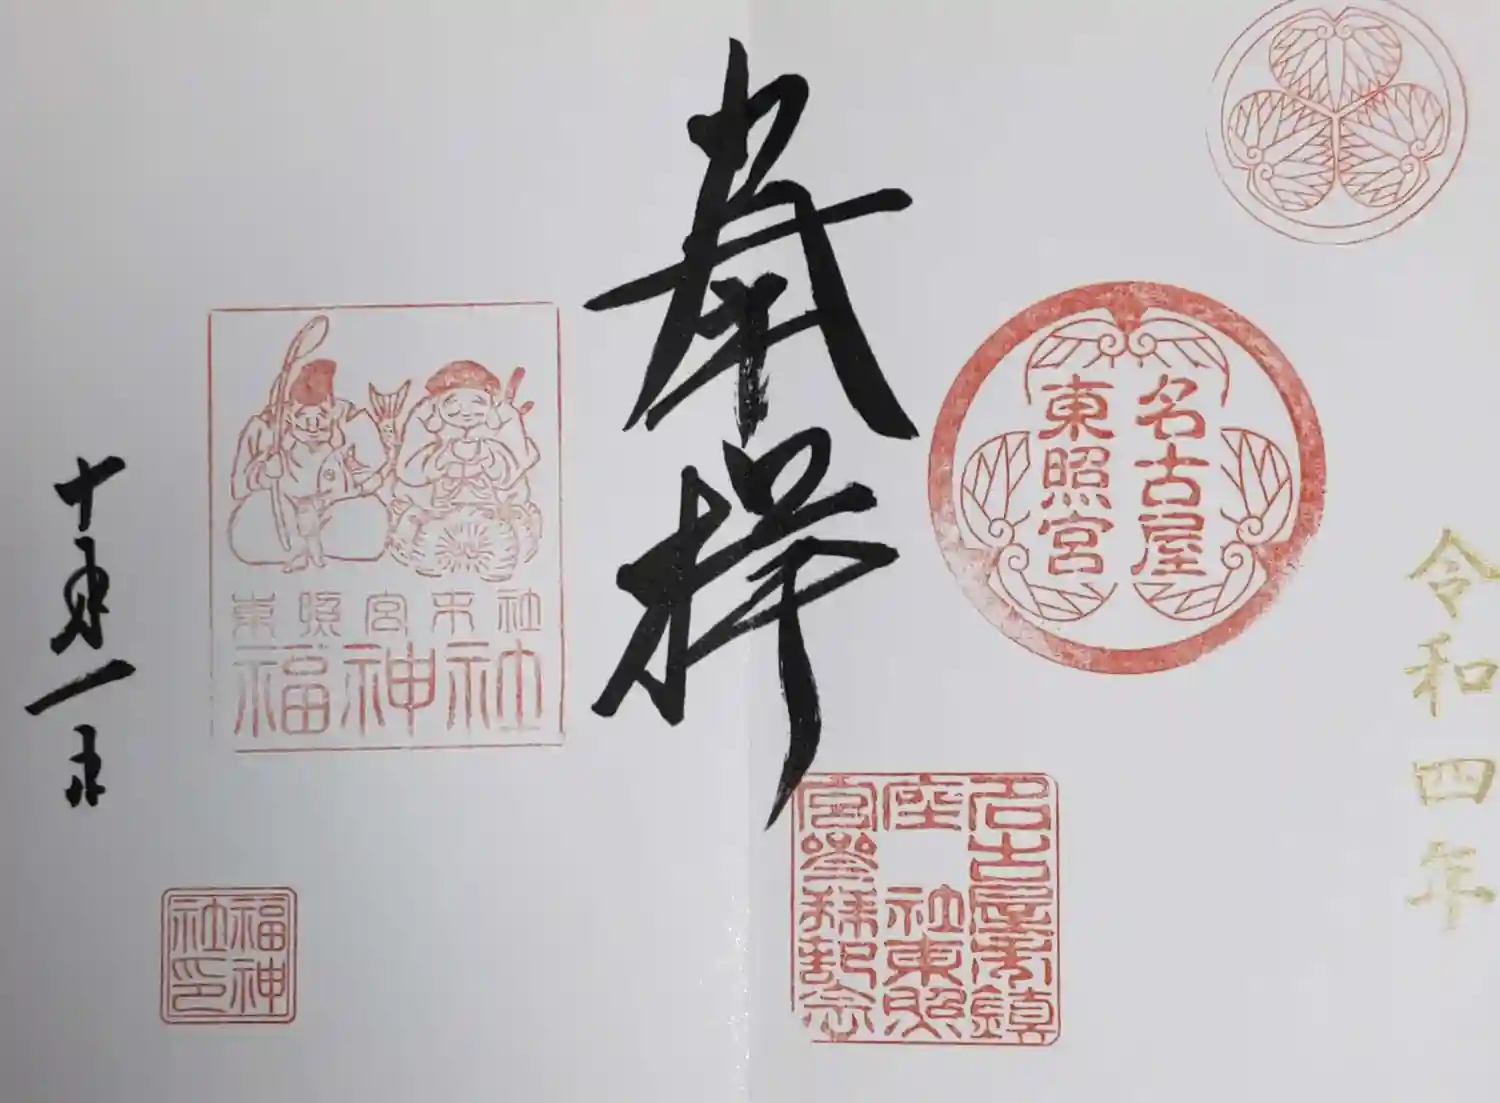 令和四年
名古屋
東照宮
名古屋市鎮
座 社東照
宮參拜記念
奉拝
東照宮末社
福神社
福神
社印
十月一日